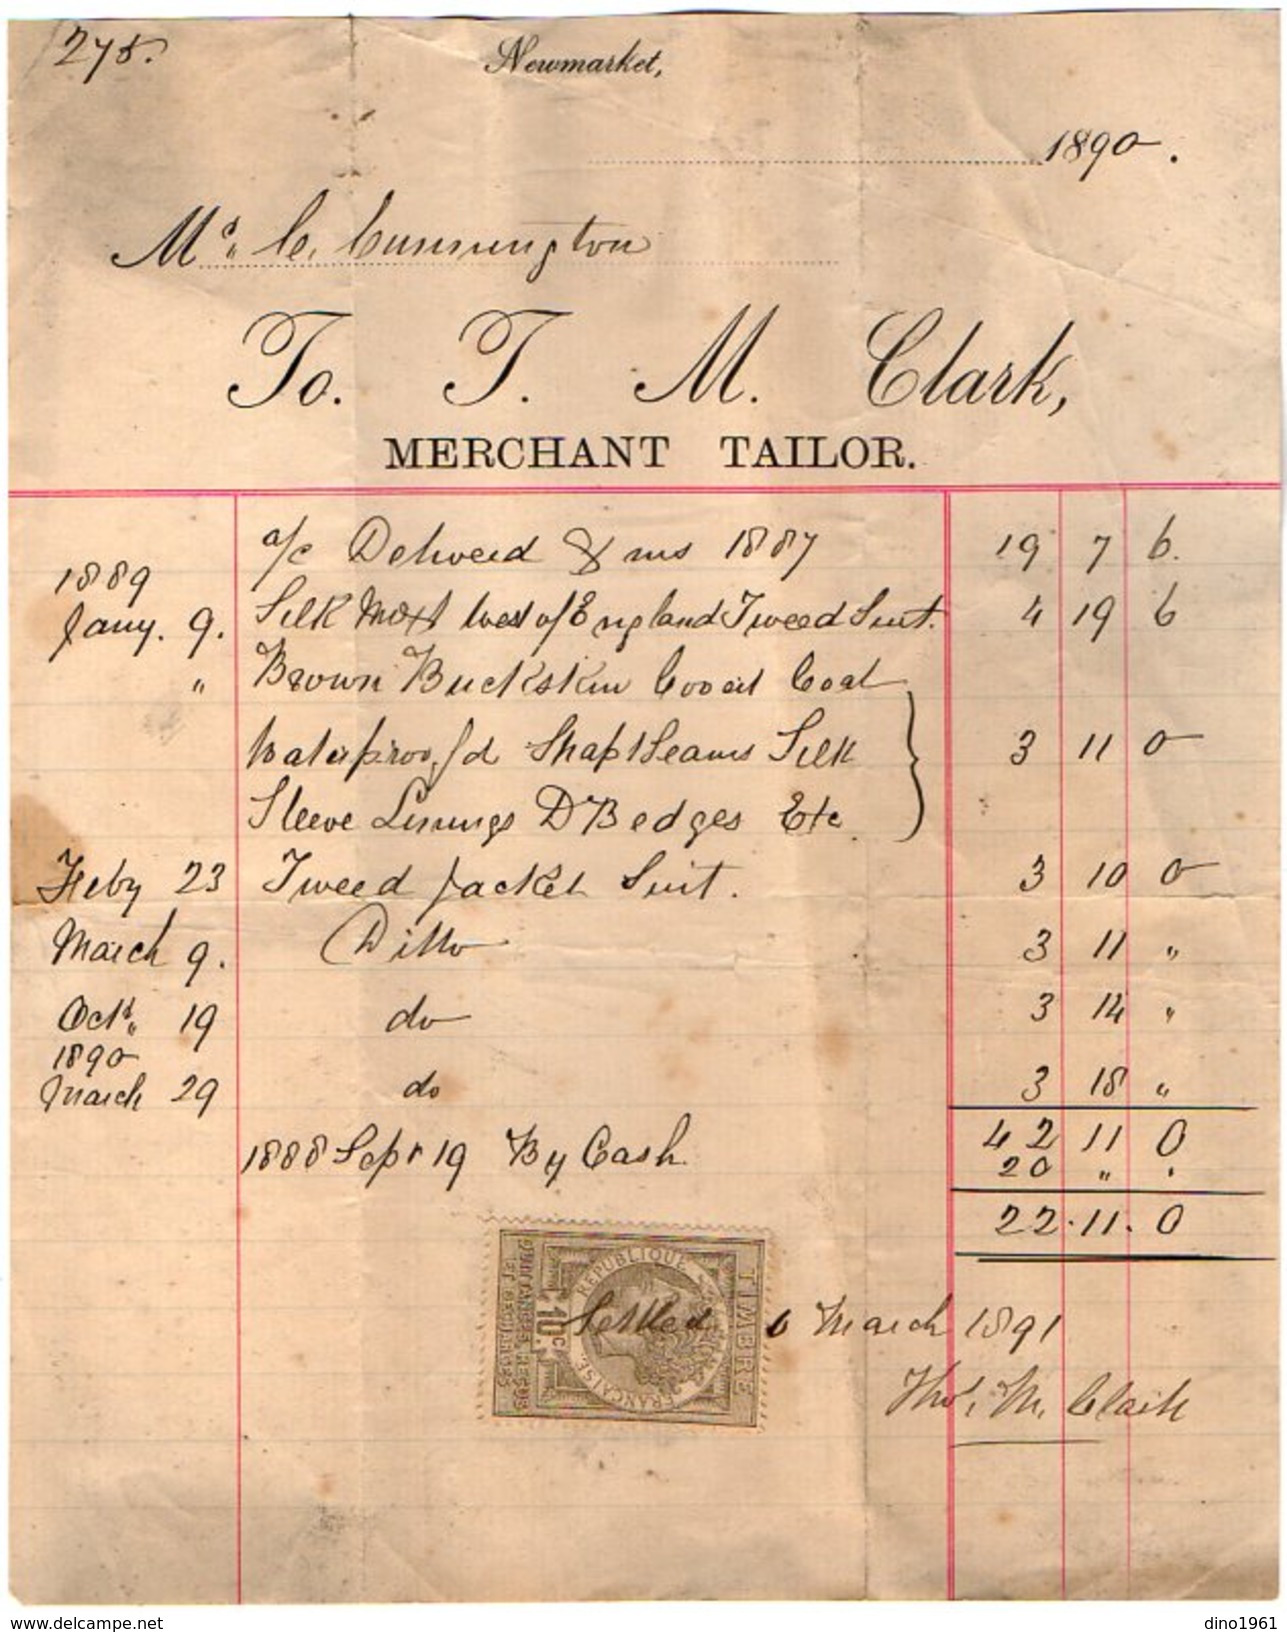 275.
Newmarket,
1890.
Mr. C. Cunnington
To. T. M. Clark,
MERCHANT TAILOR.
a/c Deliverd Xms 1887 19 7 6.
1889
Jany. 9. Silk Mixt West of England Tweed Suit. 4 19 6
" Brown Buckskin Covert Coat
Waterproofd Strapt Seams Silk 3 11 0
Sleeve Linings DB edges Etc
Feby 23 Tweed Jacket Suit. 3 10 0
March 9. Ditto 3 11 "
Oct. 19 do 3 14 "
1890
March 29 do 3 18 "
42 11 0
1888 Sepr 19 By Cash. 20 " "
22.11.0
TIMBRE
REPUBLIQUE FRANÇAISE
10c
QUITTANCES REÇUS
ET DECHARGES
Settled 6 March 1891
Thos. M. Clark
www.delcampe.net
dino1961